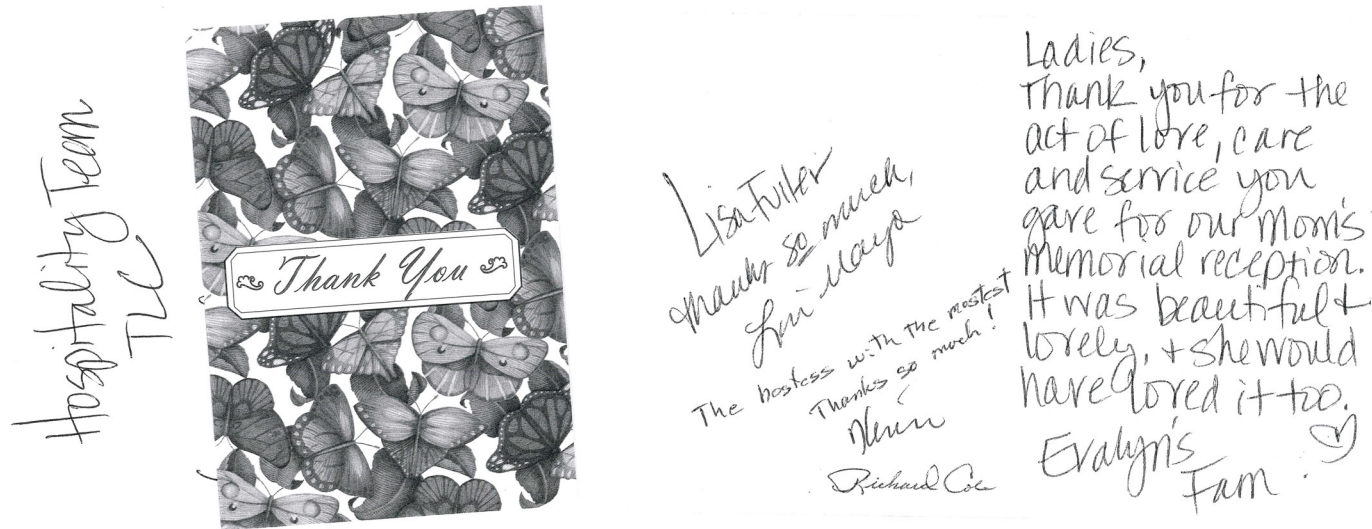 Hospitality Team
TLC
Thank You
Lisa Fuller
Thanks so much,
Lori Mayo
The hostess with the mostest
Thanks so much!
Richard Coe
Ladies,
Thank you for the
act of love, care
and service you
gave for our Mom's
memorial reception.
It was beautiful +
lovely, + she would
have loved it too.
Evalyn's
Fam.